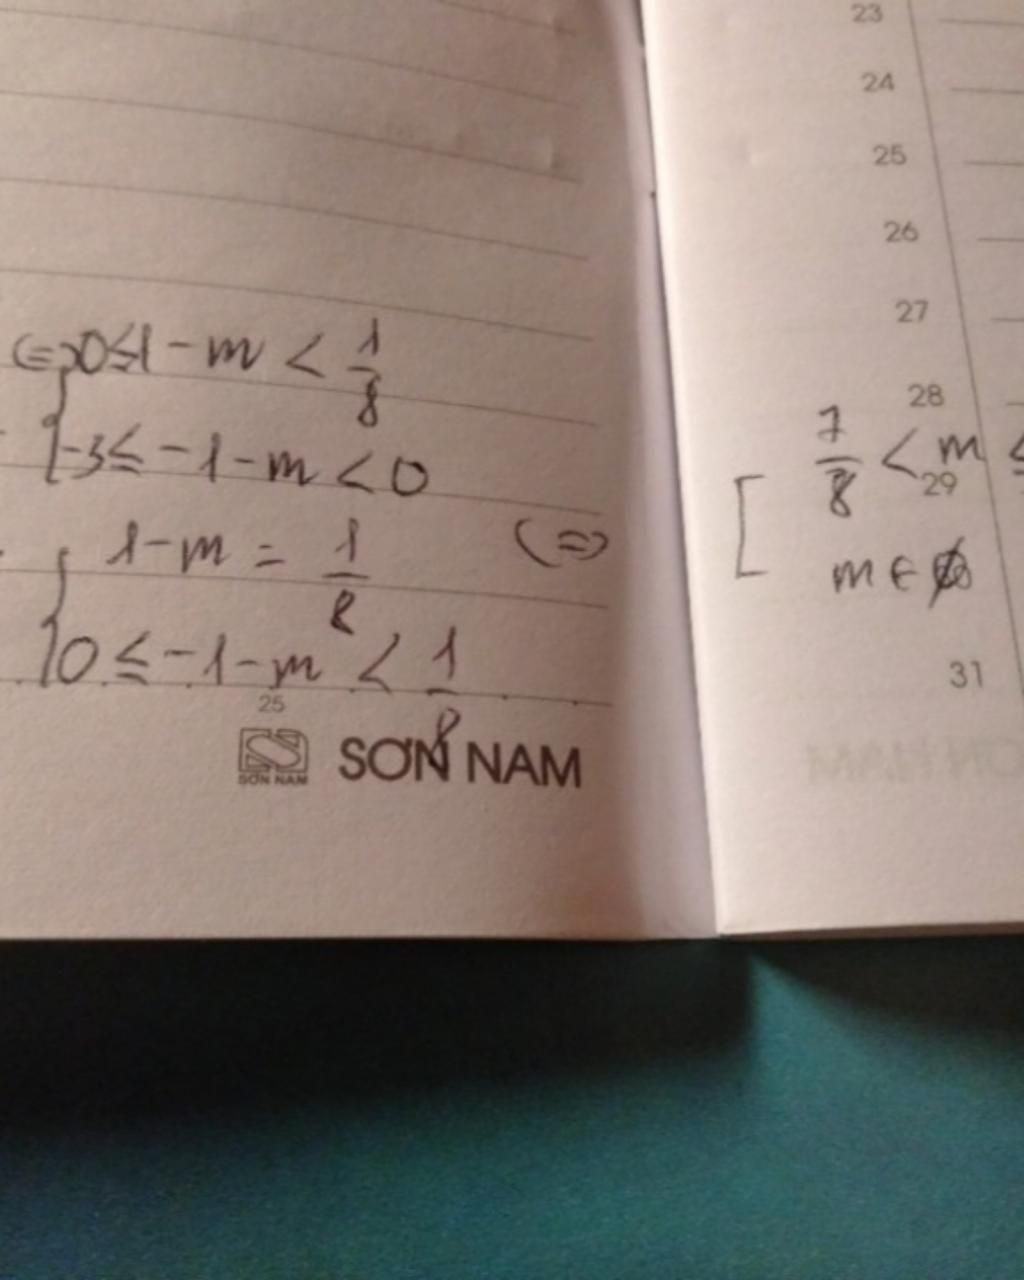 ⇔ { 0 ≤ 1 - m < 1/8
-3 ≤ -1 - m < 0
{ 1 - m = 1/8
0 ≤ -1 - m < 1/8
⇔
25
SƠN NAM
SƠN NAM
23
24
25
26
27
28
[ 7/8 < m ≤
29
m ∈ ∅
31